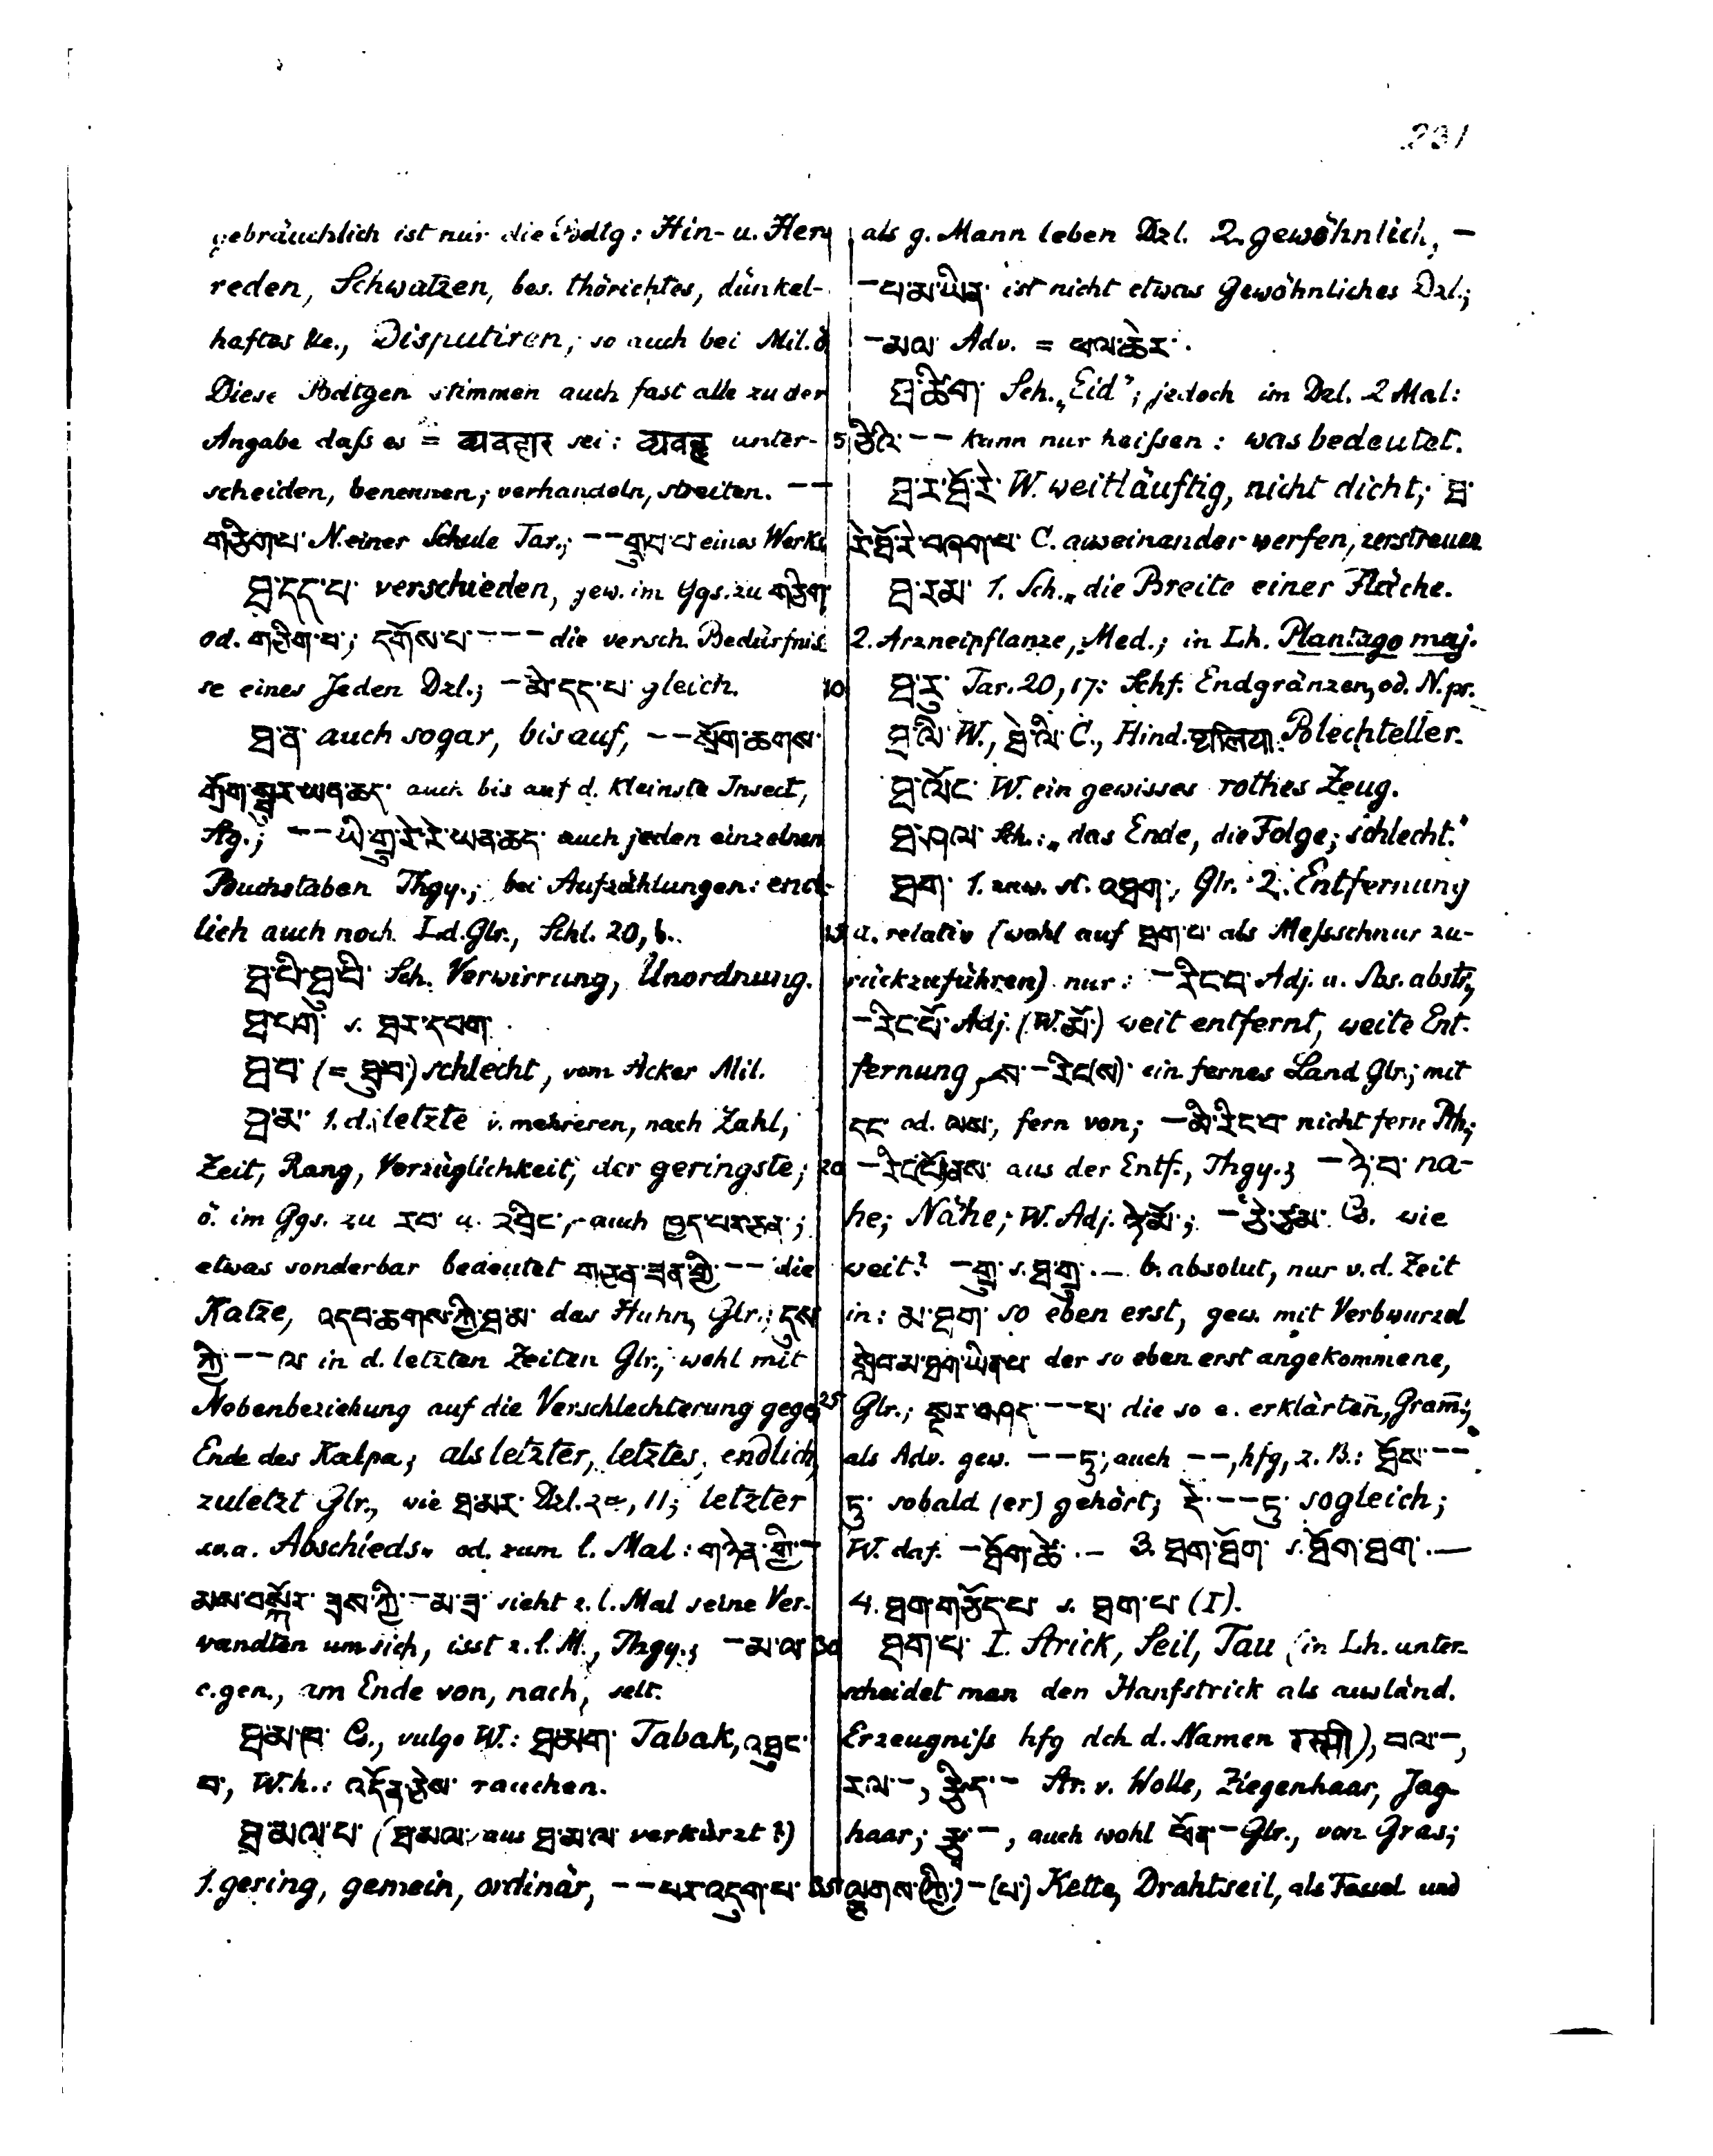 231
gebräuchlich ist nur die Bdtg: Hin- u. Her
reden, Schwatzen, bes. thörichtes, dünkel-
haftes &c., Disputiren; so auch bei Mil. ö
Diese Bdtgen stimmen auch fast alle zu der
Angabe daſs es = व्यवहार sei: व्यवहृ unter-
scheiden, benennen; verhandeln, streiten. — —
གཅིག་པ་ N. einer Schule Tar.; — — གྲུབ་པ་ eines Werks
ཐ་དད་པ་ verschieden, gew. im Ggs. zu གཅིག་
od. གཅིག་པ་; དགོས་པ་ — — — die versch. Bedürfnis
se eines Jeden Dzl.; — མི་དད་པ་ gleich.
ཐ་ན་ auch sogar, bis auf, — — སྲོག་ཆགས་
གྲོག་སྦུར་ཡན་ཆད་ auch bis auf d. kleinste Insect,
Stg.; — — ཡི་གུ་རེ་རེ་ཡན་ཆད་ auch jeden einzelnen
Buchstaben Thgy.; bei Aufzählungen: end-
lich auch noch Ld. Glr., Schl. 20, b.
ཐ་པི་ཐ་པི་ Sch. Verwirrung, Unordnung.
ཐ་དགེ་ s. ཐར་དཔག་
ཐ་བ་ (= ཐུ་བ་) schlecht, vom Acker Mil.
ཐ་མ་ 1. d. letzte v. mehreren, nach Zahl,
Zeit, Rang, Vorzüglichkeit; der geringste;
ö. im Ggs. zu རབ་ u. འབྲིང་, auch ཁྱད་པར་ཅན་;
etwas sonderbar bedeutet གཅན་ཟན་གྱི་ — — die
Katze, འདབ་ཆགས་ཀྱི་ཐ་མ་ das Huhn, Glr.; དུས་
ཀྱི་ — — ལ་ in d. letzten Zeiten Glr.; wohl mit
Nebenbeziehung auf die Verschlechterung gege
Ende des Kalpa; als letzter, letztes, endlich,
zuletzt Glr., wie ཐ་མར་ Dzl., 11; letzter
s.v.a. Abschieds- od. zum l. Mal: གཉེན་གྱི་ —
མས་བསྐོར་ ཟས་ཀྱི་ — མ་ཟ་ sieht z. l. Mal seine Ver-
wandten um sich, isst z. l. M., Thgy.; — མ་ལ་
c. gen., am Ende von, nach, selt.
ཐ་མ་ཁ་ Cs., vulgo W.: ཐ་མག་ Tabak, འཐུང་
བ་, W. h.: འདོན་ཅེས་ rauchen.
ཐ་མལ་པ་ (ཐ་མལ་ aus ཐ་མ་ལ་ verkürzt?)
1. gering, gemein, ordinär, — — པར་འདུག་པ་
als g. Mann leben Dzl. 2. gewöhnlich, —
— པ་མ་ཡིན་ ist nicht etwas Gewöhnliches Dzl.;
— མལ་ Adv. = ཕལ་ཆེར་.
ཐ་ཚིག་ Sch. „Eid“; jedoch im Dzl. 2 Mal:
5 ཅིའི་ — — kann nur heiſsen: was bedeutet.
ཐ་ར་ཐོ་རེ་ W. weitläuftig, nicht dicht; ཐ་
རེ་ཐོ་རེ་བཞག་པ་ C. auseinander werfen, zerstreuen
ཐ་རམ་ 1. Sch. „die Breite einer Fläche.
2. Arzneipflanze, Med.; in Lh. Plantago maj.
10 ཐ་རུ་ Tar. 20, 17: Schf. Endgränzen, od. N. pr.
ཐ་ལི་ W., ཐེ་ལི་ C., Hind. थालिया Blechteller.
ཐ་ལོང་ W. ein gewisses rothes Zeug.
ཐ་ཤལ་ Sch.: „das Ende, die Folge; schlecht.“
ཐག་ 1. zuw. st. འཐག་, Glr. 2. Entfernung
15 a. relativ (wohl auf ཐག་པ་ als Meſsschnur zu-
rückzuführen) nur: — རིང་བ་ Adj. u. Sbs. abstr.,
— རིང་པོ་ Adj. (W. མོ་) weit entfernt, weite Ent-
fernung, ས་ — རིང་(ས) ein fernes Land Glr.; mit
དང་ od. ལས་, fern von; — མི་རིང་བ་ nicht fern Pth.;
20 — རིང་(པོ)ནས་ aus der Entf., Thgy.; — ཉེ་བ་ na-
he; Nähe; W. Adj. ཉེ་མོ་; — ཅི་ཙམ་ Cs. wie
weit? — གུ་ s. ཐ་གུ་. — b. absolut, nur v. d. Zeit
in: མ་ཐག་ so eben erst, gew. mit Verbwurzel
སླེབ་མ་ཐག་ཡིན་པ་ der so eben erst angekommene,
25 Glr.; སྔར་བཤད་ — — པ་ die so e. erklärten, Gram.;
als Adv. gew. — — ཏུ་, auch — —, hfg, z. B.: ཐོས་ — —
ཏུ་ sobald (er) gehört; དེ་ — — ཏུ་ sogleich;
W. daf. — ཐོག་ཚེ་. — 3. ཐག་ཐོག་ s. ཐོག་ཐག་. —
4. ཐག་གཅོད་པ་ s. ཐག་པ་ (I).
30 ཐག་པ་ I. Strick, Seil, Tau (in Lh. unter-
scheidet man den Hanfstrick als ausländ.
Erzeugniſs hfg dch d. Namen रस्सी), བལ་ —,
རལ་ —, རྩིད་ — Str. v. Wolle, Ziegenhaar, Jag-
haar; རྩྭ་ —, auch wohl ཕོན་ — Glr., von Gras;
35 ལྕགས་(ཀྱི་) — (པ་) Kette, Drahtseil, als Fessel und